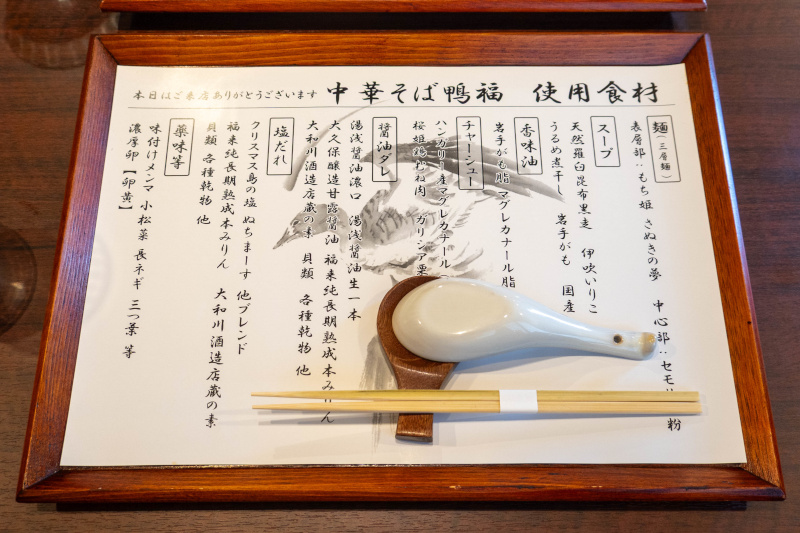 本日はご来店ありがとうございます 中華そば鴨福 使用食材
麺(三層麺)
表層部:もち姫 さぬきの夢 中心部:セモ 粉
スープ
天然羅臼昆布黒走 伊吹いりこ
うるめ煮干し 岩手がも 国産
香味油
岩手がも脂 マグレカナール脂
チャーシュー
ハンガリー産マグレカナール
桜姫鶏むね肉 ガリシア栗
醤油ダレ
湯浅醤油濃口 湯浅醤油生一本
大久保醸造甘露醤油 福来純長期熟成本みりん
大和川酒造店蔵の素 貝類 各種乾物 他
塩だれ
クリスマス島の塩 ぬちまーす 他ブレンド
福来純長期熟成本みりん 大和川酒造店蔵の素
貝類 各種乾物 他
薬味等
味付けメンマ 小松菜 長ネギ 三つ葉 等
濃厚卵【卵黄】